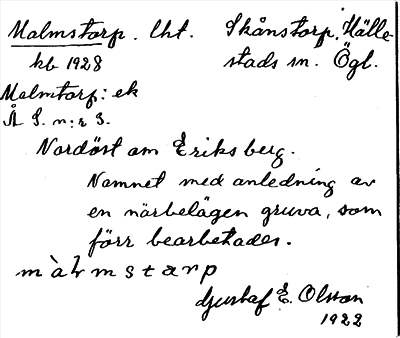 Malmstorp. lht. Skånstorp, Hälle-
kb 1928 stads sn. Ögl.
Malmtorp: ek
Å S. n:r 3.
Nordöst om Eriksberg.
Namnet med anledning av
en närbelägen gruva, som
förr bearbetades.
màl̀mstarp
Gustaf E. Olsson
1922